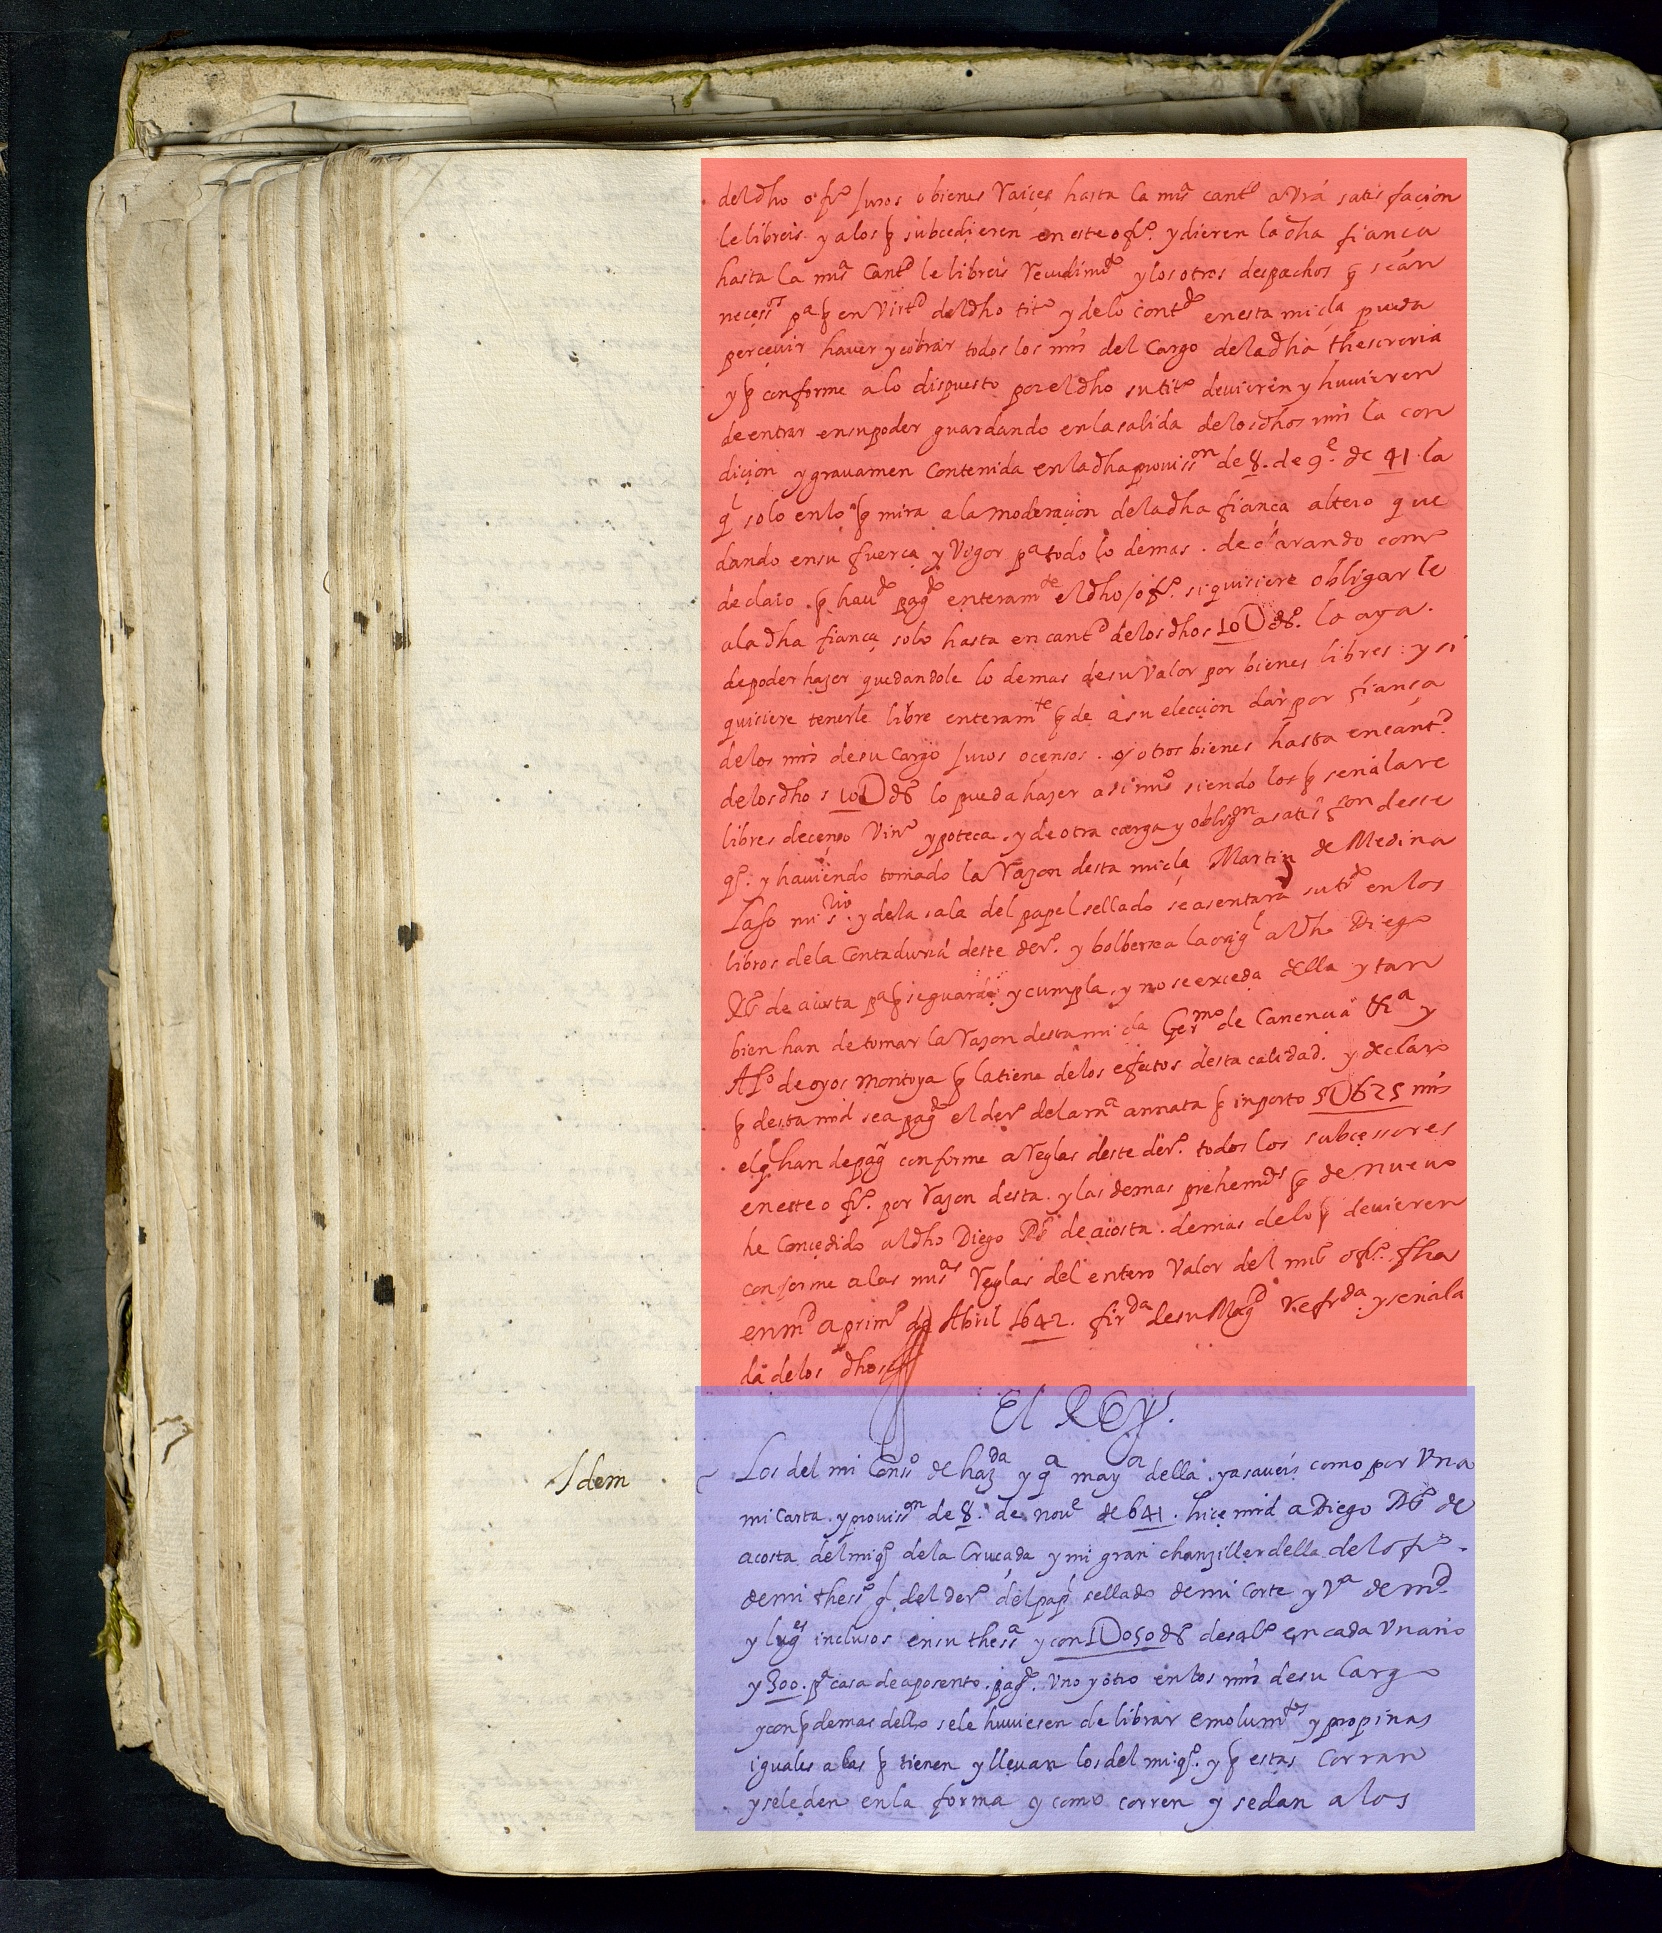 del dho offº juros o bienes raices hasta la misª cantᵈ avrá satisfación
le libreis y a los q̃ subcedieren en este offº. y dieren la dha fiança
hasta la misª cantᵈ le libreis recudimᵗᵒ y los otros despachos q̃ seán
necessºˢ pª q̃ en virtᵈ del dho titº y de lo contᵈᵒ en esta mi cla pueda
percevir haver y cobrar todos los mrs del cargo de la dha thesoreria
y q̃ conforme a lo dispuesto por el dho su titº devieren y huvieren
de entrar en su poder guardando en la salida de los dhos mrs la con
dicion y gravamen contenida en la dha provissᵒⁿ de 8. de 9ᵉ. de 41. la
ql̃ solo en lo q̃ mira a la moderacion de la dha fiança altero que
dando en su fuerça y vigor pª todo lo demas. declarando como
declaro. q̃ havᵈᵒ pagᵈᵒ enteramᵗᵉ el dho offº. si quisiere obligarle
a la dha fiança solo hasta en cantᵈ de los dhos 10D dºˢ. lo aya.
de poder hazer quedandole lo demas de su valor por bienes libres. y si
quisiere tenerle libre enteramᵗᵉ q̃ de a su elección dar por fiança
de los mrs de su cargo juros o censos. o otros bienes hasta en cantᵈ
de los dhos 10D dºˢ lo pueda hazer asimº siendo los q̃ señalare
libres de censo vinº ypoteca. y de otra carga y obligᵒⁿ a satisfᵒⁿ desse
qº. y haviendo tomado la razon desta mi cla Martin de Medina
Laso mi sʳⁱᵒ. y de la sala del papel sellado se asentará su trᵈᵒ en los
libros de la Contaduriá deste derº. y bolbersea la origˡ al dho Diego
Rº de acosta pª q̃ se guarde y cumpla. y no se exceda della y tan
bien han de tomar la razon desta mi cla Germᵒ de Canencia
Alº de oyos montoya q̃ la tiene de los efectos desta calidad. y declaro
q̃ desta mrd sea pagᵈᵒ el derº de la mª annata q̃ inporto 5D625 mrs
el ql̃ han de pagʳ conforme a reglas deste derº. todos los subcessores
en este offº. por razon desta. y las demas prehemᵈˢ q̃ de nuevo
he concedido al dho Diego Rº de acosta. demas de lo q̃ devieren
conforme a las misªˢ reglas del entero valor del mº offº. fha
en mᵈ a primº de Abril 1642. firᵈᵃ de su Magᵈ refrᵈᵃ. y señala
da de los dhos
El Rey.
Idem
Los del mi Conssº de hazᵈᵃ y qª mayª della. ya saveis como por una
mi carta. y provissᵒⁿ de 8. de novᵉ de 641. hice mrd a Diego Rº de
acosta del mi qº de la Cruçada y mi gran chanziller della del offº.
de mi thessº gˡ del derº del papˡ sellado de mi corte y vª de mᵈ.
y lugᵉˢ inclusos en su thesª y con 1D050 dºˢ de salº en cada un año
y 300. pª casa de aposento. pagᵒˢ. uno y otro en los mrs de su Cargo
y con q̃ demas dello se le huviesen de librar emolumᵗᵒˢ y propinas
iguales a las q̃ tienen y llevan los del mi qº. y q̃ estas corran
y se le den en la forma y como corren y se dan a los